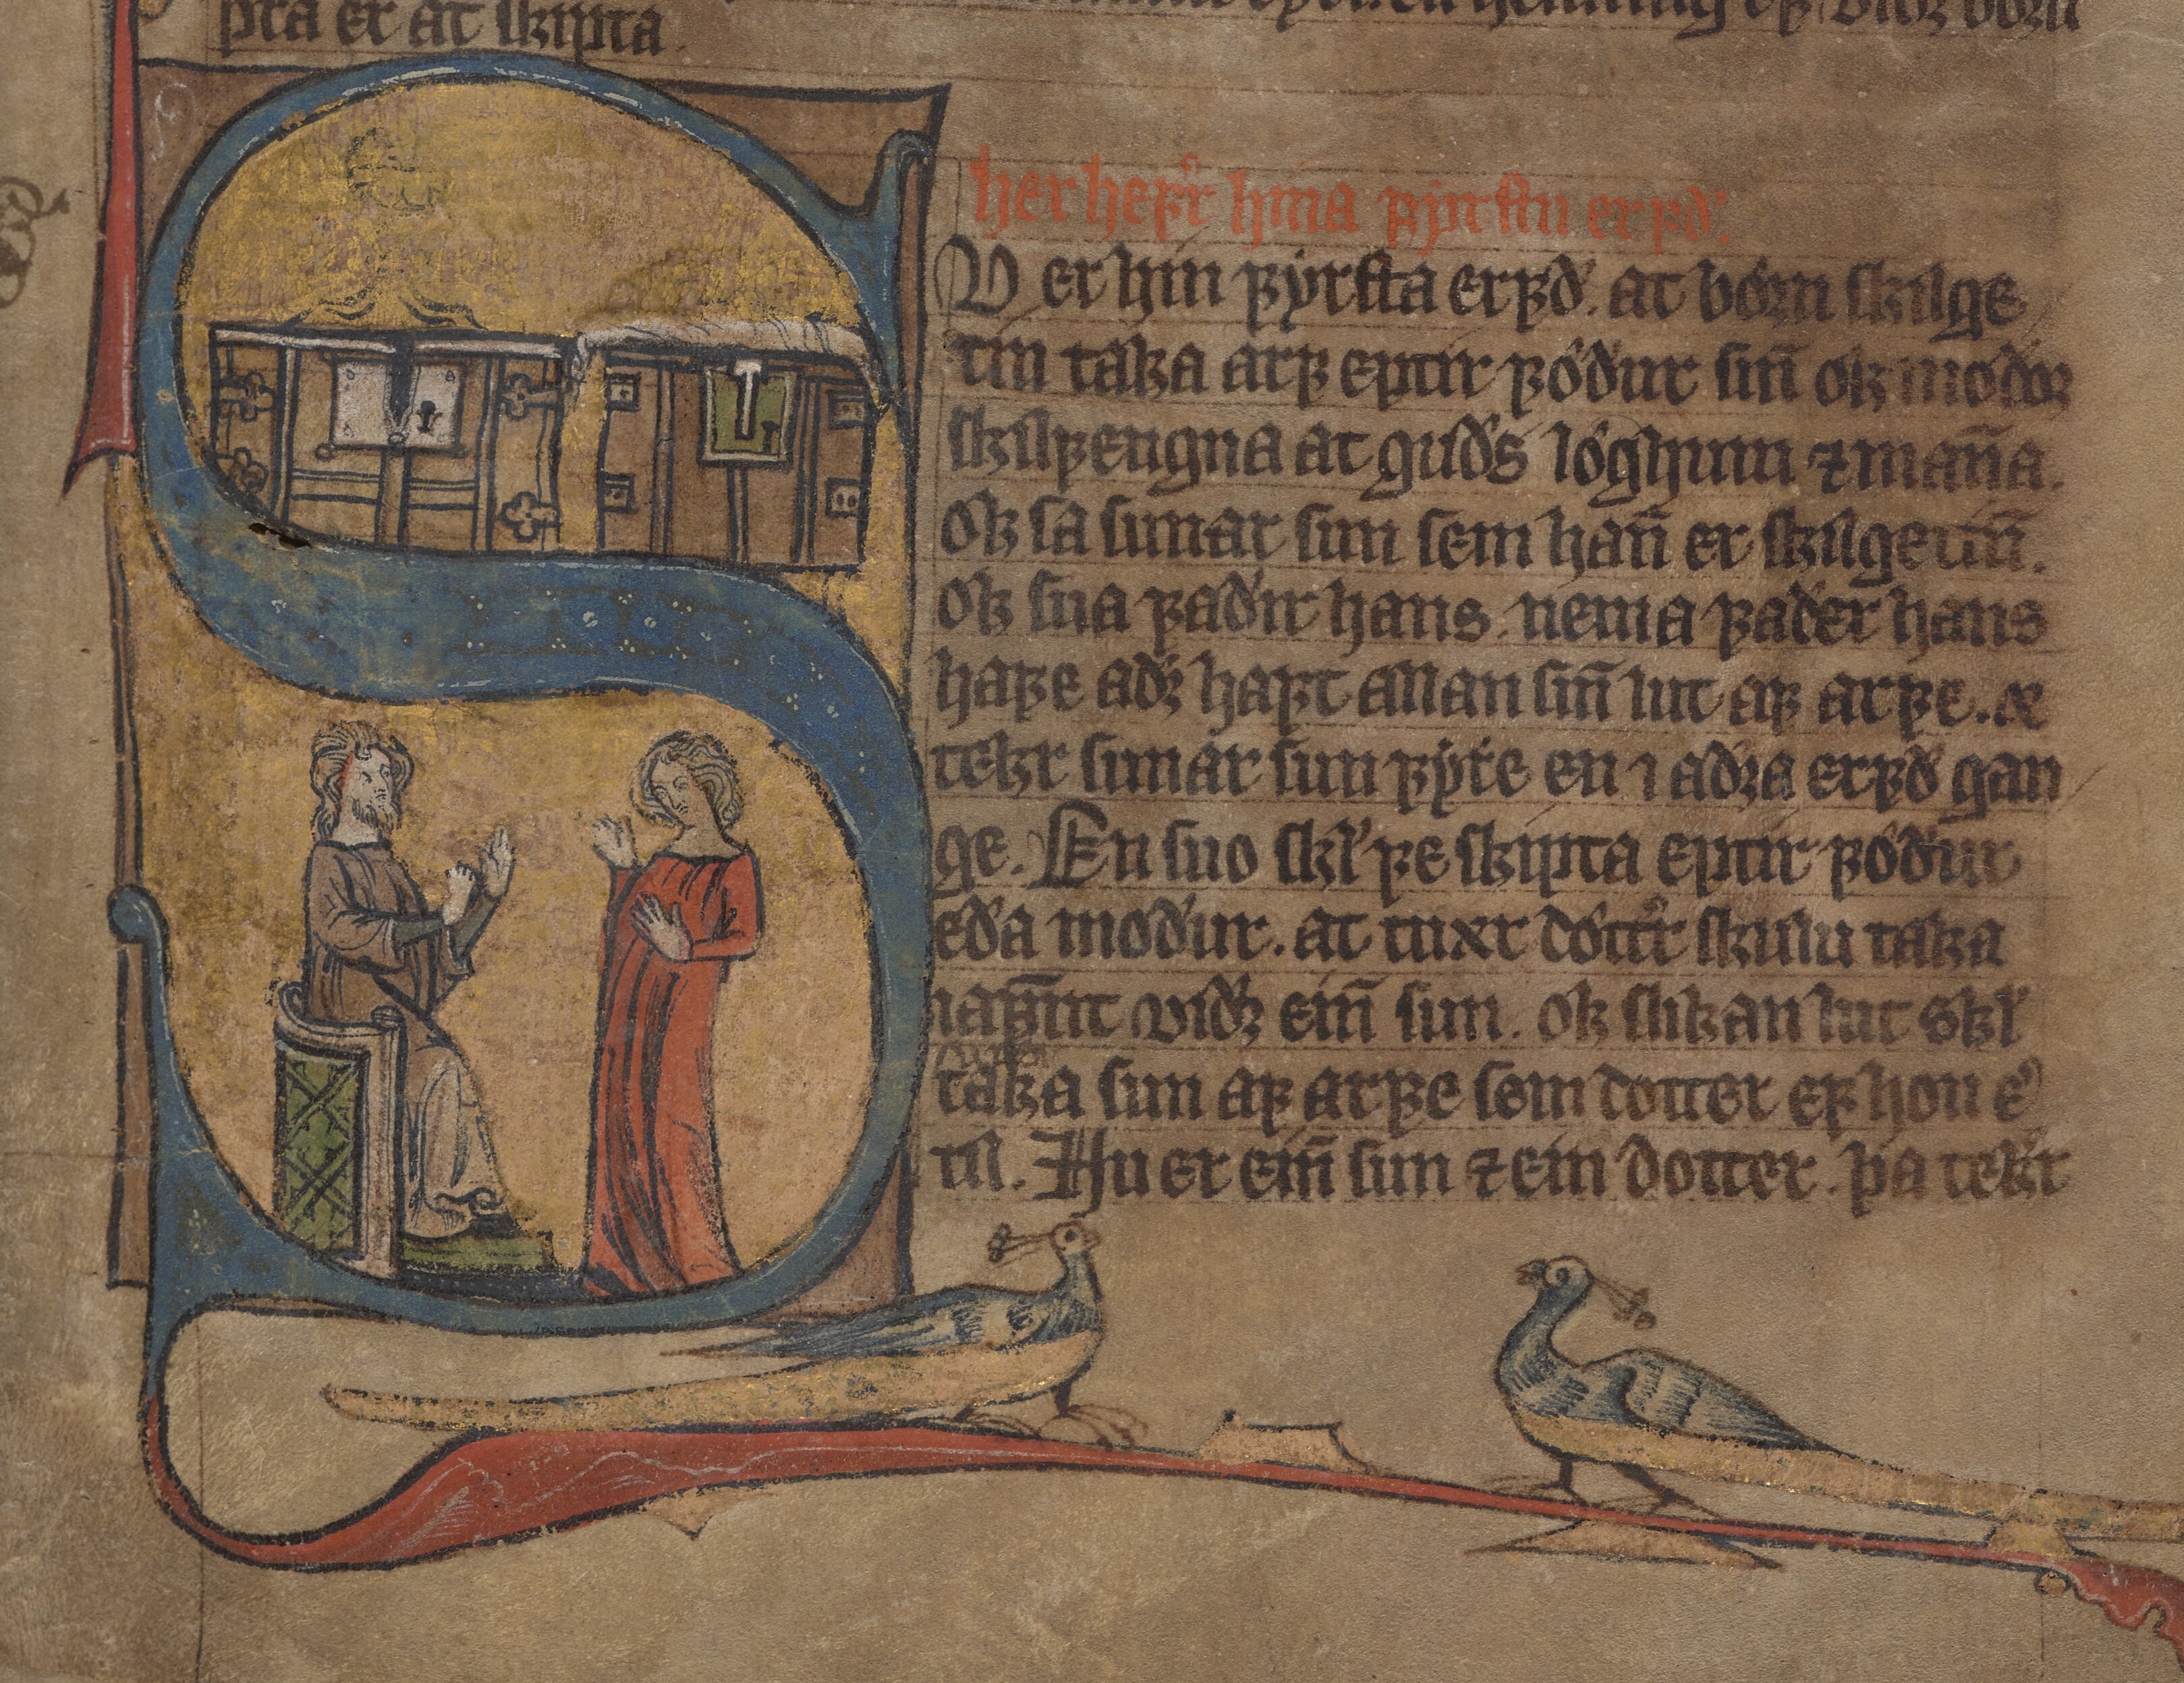 pta er at skipta.
her hefr hina fyrstu erfð.
SU er hin fyrsta erfð. at börn skilge
tin taka arf eptir föður sīn ok modor
skilfengna at guðs löghum ⁊ mān̄a.
Ok sa sunar sun sem han̄ er skilgetin̄.
Ok sua faðir hans. nema faðer hans
hafe aðr haft allan sīn lut af arfe. &
tekr sunar sun fyrre en i aðra erfð gan
ge. En suo skl' fe skipta eptir föður
eða moður. at tuær dötr skulu taka
iafnt við ein̄ sun. ok slikan lut skl'
taka sun af arfe sem dotter ef hon er
til. Nu er ein̄ sun ⁊ ein dotter. þa tekr